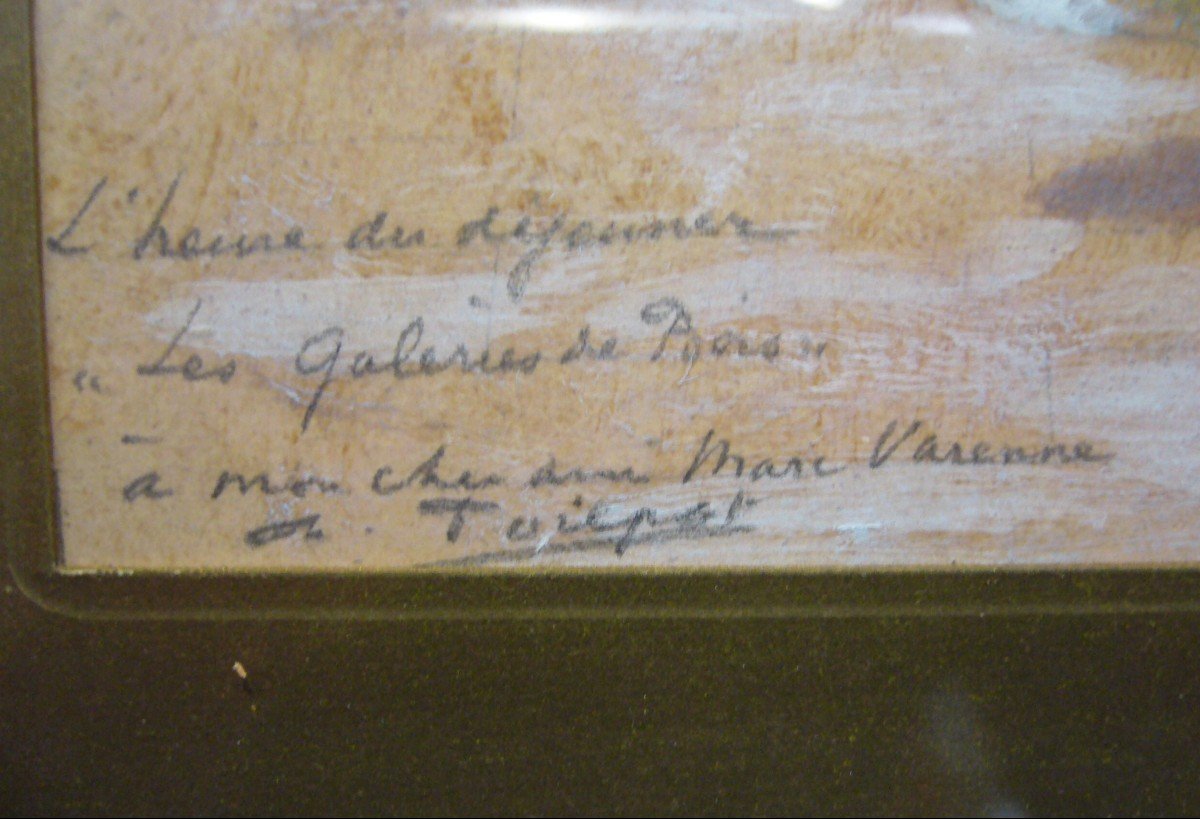 L'heure du déjeuner
" Les Galeries de Bois "
à mon cher ami Marc Varenne